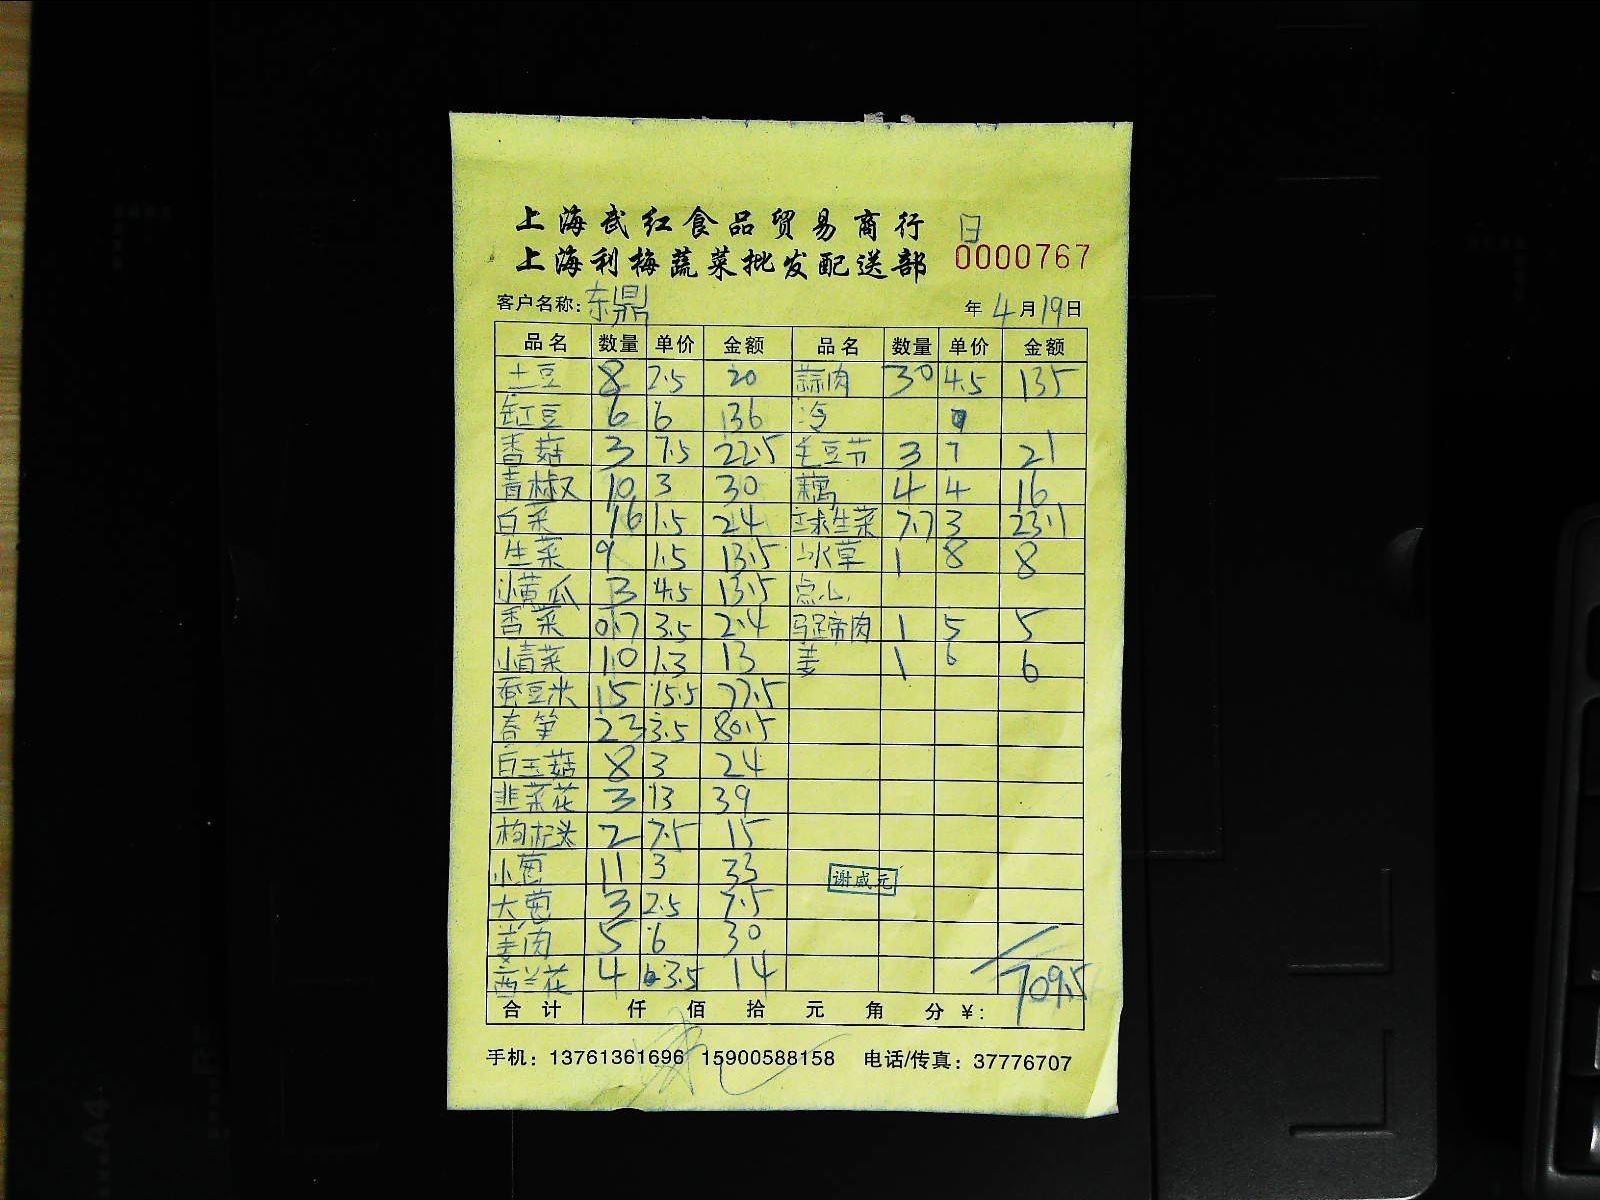 上海武红食品贸易商行 日
上海利梅蔬菜批发配送部 0000767
客户名称: 东鼎 年 4 月 19 日
品名 数量 单价 金额 品名 数量 单价 金额
土豆 8 2.5 20 蒜肉 30 4.5 135
缸豆 6 6 136 冷
香菇 3 7.5 22.5 毛豆节 3 7 21
青椒 10 3 30 藕 4 4 16
白菜 16 1.5 24 球生菜 7.7 3 23.1
生菜 9 1.5 13.5 冰草 1 8 8
小黄瓜 3 4.5 13.5 点心
香菜 0.7 3.5 2.4 马蹄肉 1 5 5
小青菜 10 1.3 13 姜 1 6 6
蚕豆米 15 15.5 77.5
春笋 23 3.5 80.5
白玉菇 8 3 24
韭菜花 3 13 39
枸杞头 2 7.5 15
小葱 11 3 33 谢威元
大葱 3 2.5 7.5
姜肉 5 6 30
西兰花 4 3.5 14
709.5
合计 仟 佰 拾 元 角 分 ¥:
手机: 13761361696 15900588158 电话/传真: 37776707